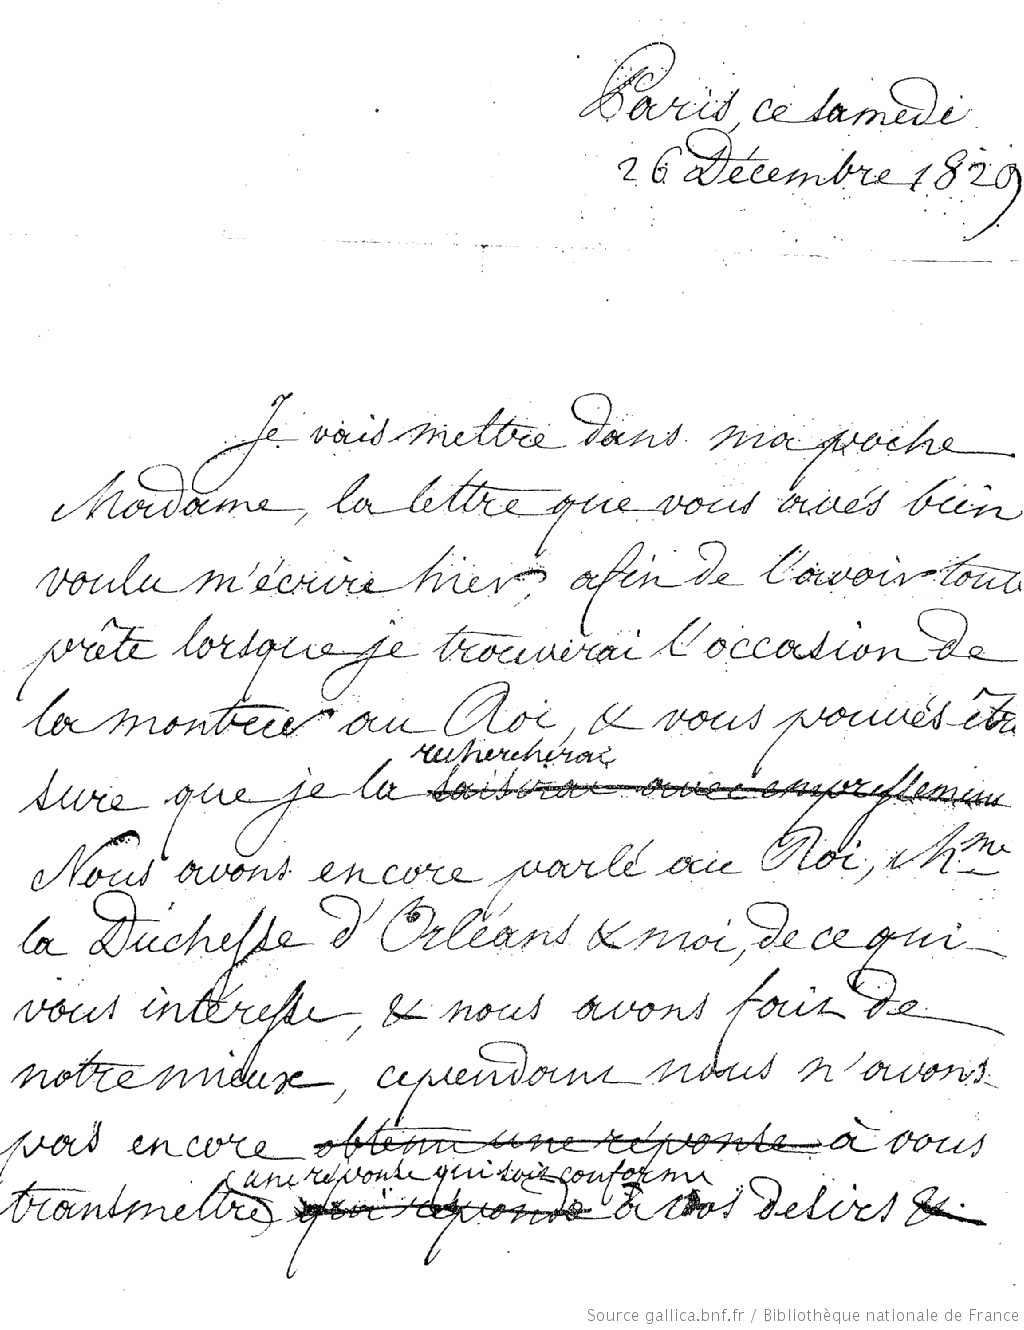 Paris, ce samedi
26 Décembre 1829
Je vais mettre dans ma poche
Madame, la lettre que vous avés bien
voulu m'écrire hier, afin de l'avoir toute
prête lorsque je trouverai l'occasion de
la montrer au Roi, & vous pouvés être
rechercherai
sure que je la saisirai avec empressement
Nous avons encore parlé au Roi, Mme
la Duchesse d'Orléans & moi, de ce qui
vous intéresse, & nous avons fait de
notre mieux, cependant nous n'avons
pas encore obtenu une réponse à vous
une réponse qui soit conforme
transmettre qui réponde à vos desirs &
Source gallica.bnf.fr / Bibliothèque nationale de France